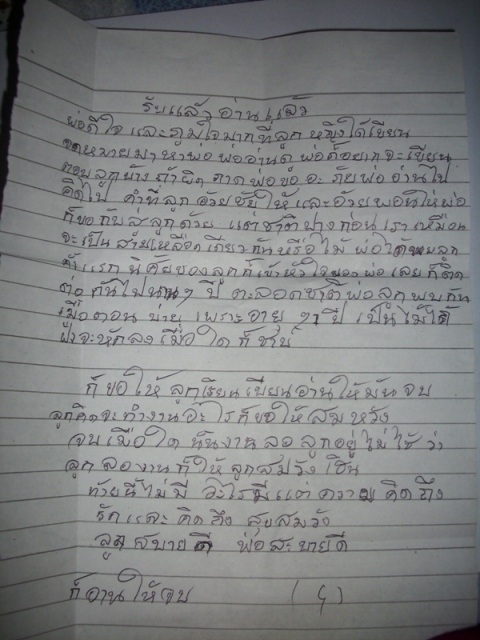 รับแล้วอ่านแล้ว
พ่อดีใจ และภูมิใจมากที่ลูก หญิงได้เขียน
จดหมายมาหาพ่อ พ่ออ่านดู พ่อก็อยากจะเขียน
ตอบลูกบ้าง ถ้าผิด พาด พ่อขอ อะ ภัย พ่ออ่านไป
คิดไป คำที่ลูก อวยชัยให้ และอ้วยพอนให้พ่อ
ก็ขอกับสู่ลูกด้วย แต่ชาติปางก่อน เราเหมือน
จะเป็น สายเหลือดเดียวกัน หรือไม่ พ่อได้พบลูก
คั้งแรก นิศัยของลูกก็เข้าหัวใจของพ่อ เลยก็คิด
ต่อ กันไปนานๆ ปี ตะลอดชาติ พ่อลูกพบกัน
เมื่อตอน บาย เพราะอายุ ๆ ปี เป็นไม้ใต้
ฝุ่งจะหักลงเมื่อใดก็ช่าง
ก็ขอให้ ลูกเรียนเขียนอ่านให้มันจบ
ลูกคิดจะทำงานอะไรก็ขอให้สมหวัง
จบเมื่อใด นั้นงานลอลูกอยู่ไม่ใช้ว่า
ลูกลองานก็ให้ ลูกสมวัง เธิน
ท้ายนี้ไม่มี อะไรมีแต่ความคิดถึง
รักและคิดถึง สุขสมวัง
ลูกสบายดี พ่อสะบายดี
ก็อานให้จบ